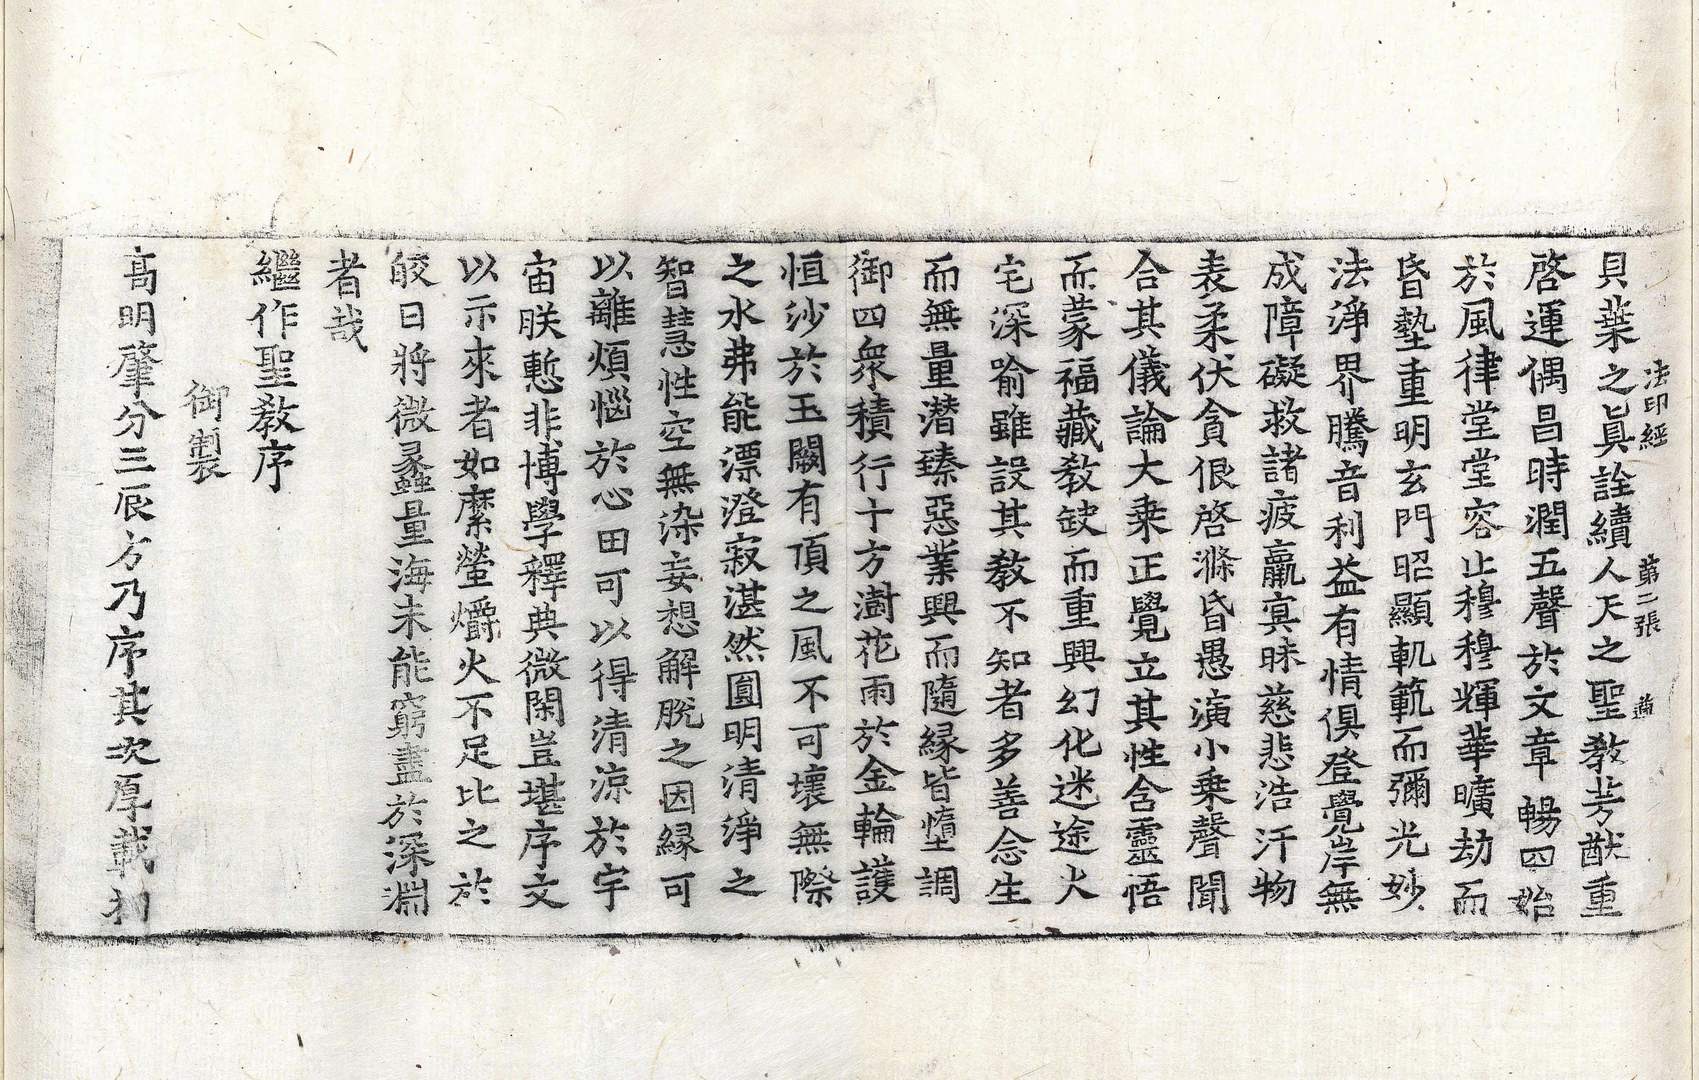 法印經 第二張
貝葉之眞詮續人天之聖教芳猷重
啓運偶昌時潤五聲於文章暢四始
於風律堂堂容止穆穆輝華曠劫而
昏墊重明玄門昭顯軌範而彌光妙
法淨界騰音利益有情俱登覺岸無
成障礙救諸疲羸㝠昧慈悲浩汗物
表柔伏貪佷啓滌昏愚演小乗聲聞
合其儀論大乗正覺立其性含靈悟
而蒙福藏教缺而重興幻化迷途火
宅深喻雖設其教不知者多善念生
而無量潜臻惡業興而隨緣皆墮調
御四衆積行十方澍花雨於金輪護
恒沙於玉闕有頂之風不可壞無際
之水弗能漂澄寂湛然圎明清淨之
智慧性空無染妄想解脫之因緣可
以離煩惱於心田可以得清涼於宇
宙朕慙非博學釋典微閑豈堪序文
以示來者如縻螢爝火不足比之於
皎日將微蠡量海未能窮盡於深淵
者哉
繼作聖教序
御製
高明肇分三辰方乃序其次厚載初